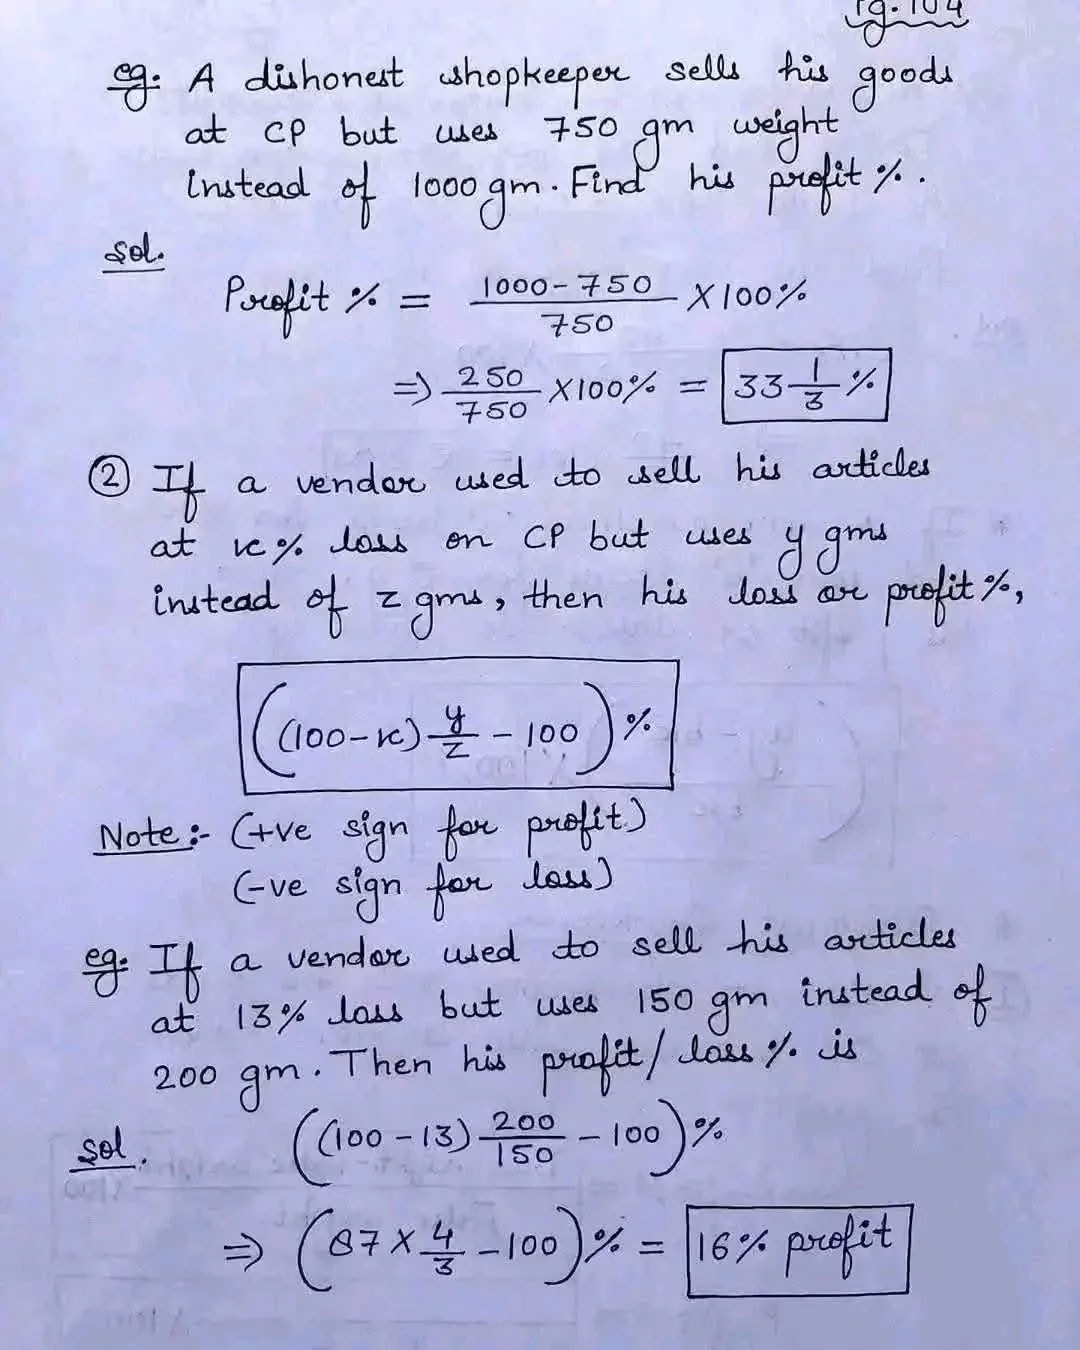 Pg. 104
eg: A dishonest shopkeeper sells his goods
at CP but uses 750 gm weight
instead of 1000 gm. Find his profit %.
Sol.
Profit % = (1000-750)/750 X100%
⇒ 250/750 X100% = 33 1/3 %
② If a vendor used to sell his articles
at x% loss on CP but uses y gms
instead of z gms, then his loss or profit %,
((100-x) y/z - 100)%
Note :- (+ve sign for profit)
(-ve sign for loss)
eg: If a vendor used to sell his articles
at 13% loss but uses 150 gm instead of
200 gm. Then his profit/loss % is
Sol. ((100-13) 200/150 - 100)%
⇒ (87 X 4/3 - 100)% = 16% profit